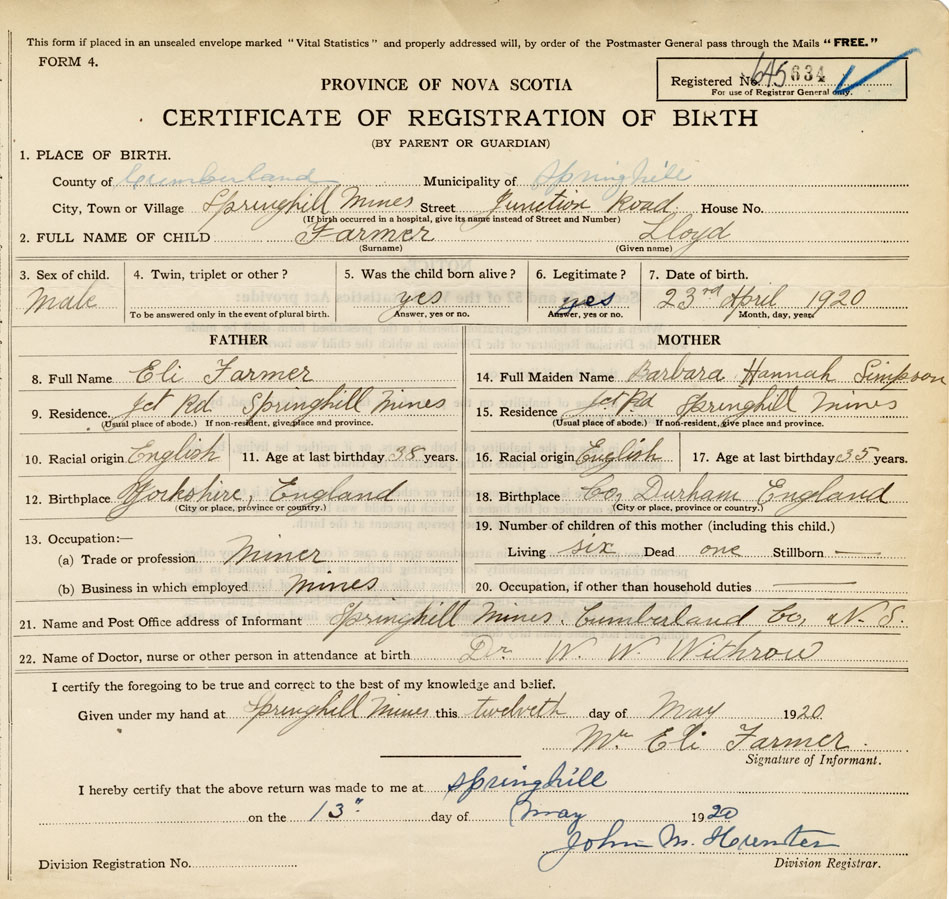 This form if placed in an unsealed envelope marked "Vital Statistics" and properly addressed will, by order of the Postmaster General pass through the Mails "FREE."
FORM 4.
Registered No. 634
For use of Registrar General only.
PROVINCE OF NOVA SCOTIA
CERTIFICATE OF REGISTRATION OF BIRTH
(BY PARENT OR GUARDIAN)
1. PLACE OF BIRTH.
County of Cumberland Municipality of Springhill
City, Town or Village Springhill Mines Street Junction Road House No.
(If birth occurred in a hospital, give its name instead of Street and Number)
2. FULL NAME OF CHILD Farmer Lloyd
(Surname) (Given name)
3. Sex of child. 4. Twin, triplet or other? 5. Was the child born alive? 6. Legitimate? 7. Date of birth.
Male yes yes 23rd April 1920
To be answered only in the event of plural birth. Answer, yes or no. Answer, yes or no. Month, day, year
FATHER MOTHER
8. Full Name Eli Farmer 14. Full Maiden Name Barbara Hannah Simpson
9. Residence. Jct Rd Springhill Mines 15. Residence Jct Rd Springhill Mines
(Usual place of abode.) If non-resident, give place and province. (Usual place of abode.) If non-resident, give place and province.
10. Racial origin English 11. Age at last birthday 38 years. 16. Racial origin English 17. Age at last birthday 35 years.
12. Birthplace Yorkshire, England 18. Birthplace Co, Durham England
(City or place, province or country.) (City or place, province or country.)
13. Occupation:— 19. Number of children of this mother (including this child.)
(a) Trade or profession Miner Living six Dead one Stillborn —
(b) Business in which employed Mines 20. Occupation, if other than household duties —
21. Name and Post Office address of Informant Springhill Mines. Cumberland Co, N. S.
22. Name of Doctor, nurse or other person in attendance at birth Dr W. W. Withrow
I certify the foregoing to be true and correct to the best of my knowledge and belief.
Given under my hand at Springhill Mines this twelveth day of May 1920
Mr Eli Farmer.
Signature of Informant.
I hereby certify that the above return was made to me at Springhill
on the 13" day of May 1920
John M. Hunter
Division Registration No. Division Registrar.